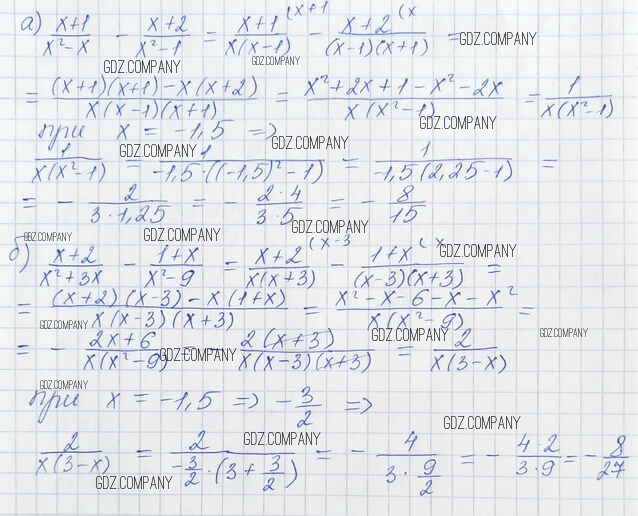 а) (x+1)/(x²-x) - (x+2)/(x²-1) = (x+1)/(x(x-1)) (x+1 - (x+2)/((x-1)(x+1)) (x =
GDZ.COMPANY GDZ.COMPANY GDZ.COMPANY
= ((x+1)(x+1) - x(x+2))/(x(x-1)(x+1)) = (x²+2x+1-x²-2x)/(x(x²-1)) = 1/(x(x²-1))
GDZ.COMPANY
при x = -1,5 =>
GDZ.COMPANY GDZ.COMPANY
1/(x(x²-1)) = 1/(-1,5·((-1,5)²-1)) = 1/(-1,5(2,25-1)) =
= - 2/(3·1,25) = - (2·4)/(3·5) = - 8/15
GDZ.COMPANY GDZ.COMPANY GDZ.COMPANY
б) (x+2)/(x²+3x) - (1+x)/(x²-9) = (x+2)/(x(x+3)) (x-3 - (1+x)/((x-3)(x+3)) (x =
GDZ.COMPANY
= ((x+2)(x-3) - x(1+x))/(x(x-3)(x+3)) = (x²-x-6-x-x²)/(x(x²-9)) =
GDZ.COMPANY GDZ.COMPANY GDZ.COMPANY
= - (2x+6)/(x(x²-9)) = - 2(x+3)/(x(x-3)(x+3)) = 2/(x(3-x))
GDZ.COMPANY
GDZ.COMPANY
при x = -1,5 => -3/2 =>
GDZ.COMPANY
2/(x(3-x)) = 2/(-3/2·(3+3/2)) = - 4/(3·9/2) = - (4·2)/(3·9) = - 8/27
GDZ.COMPANY GDZ.COMPANY